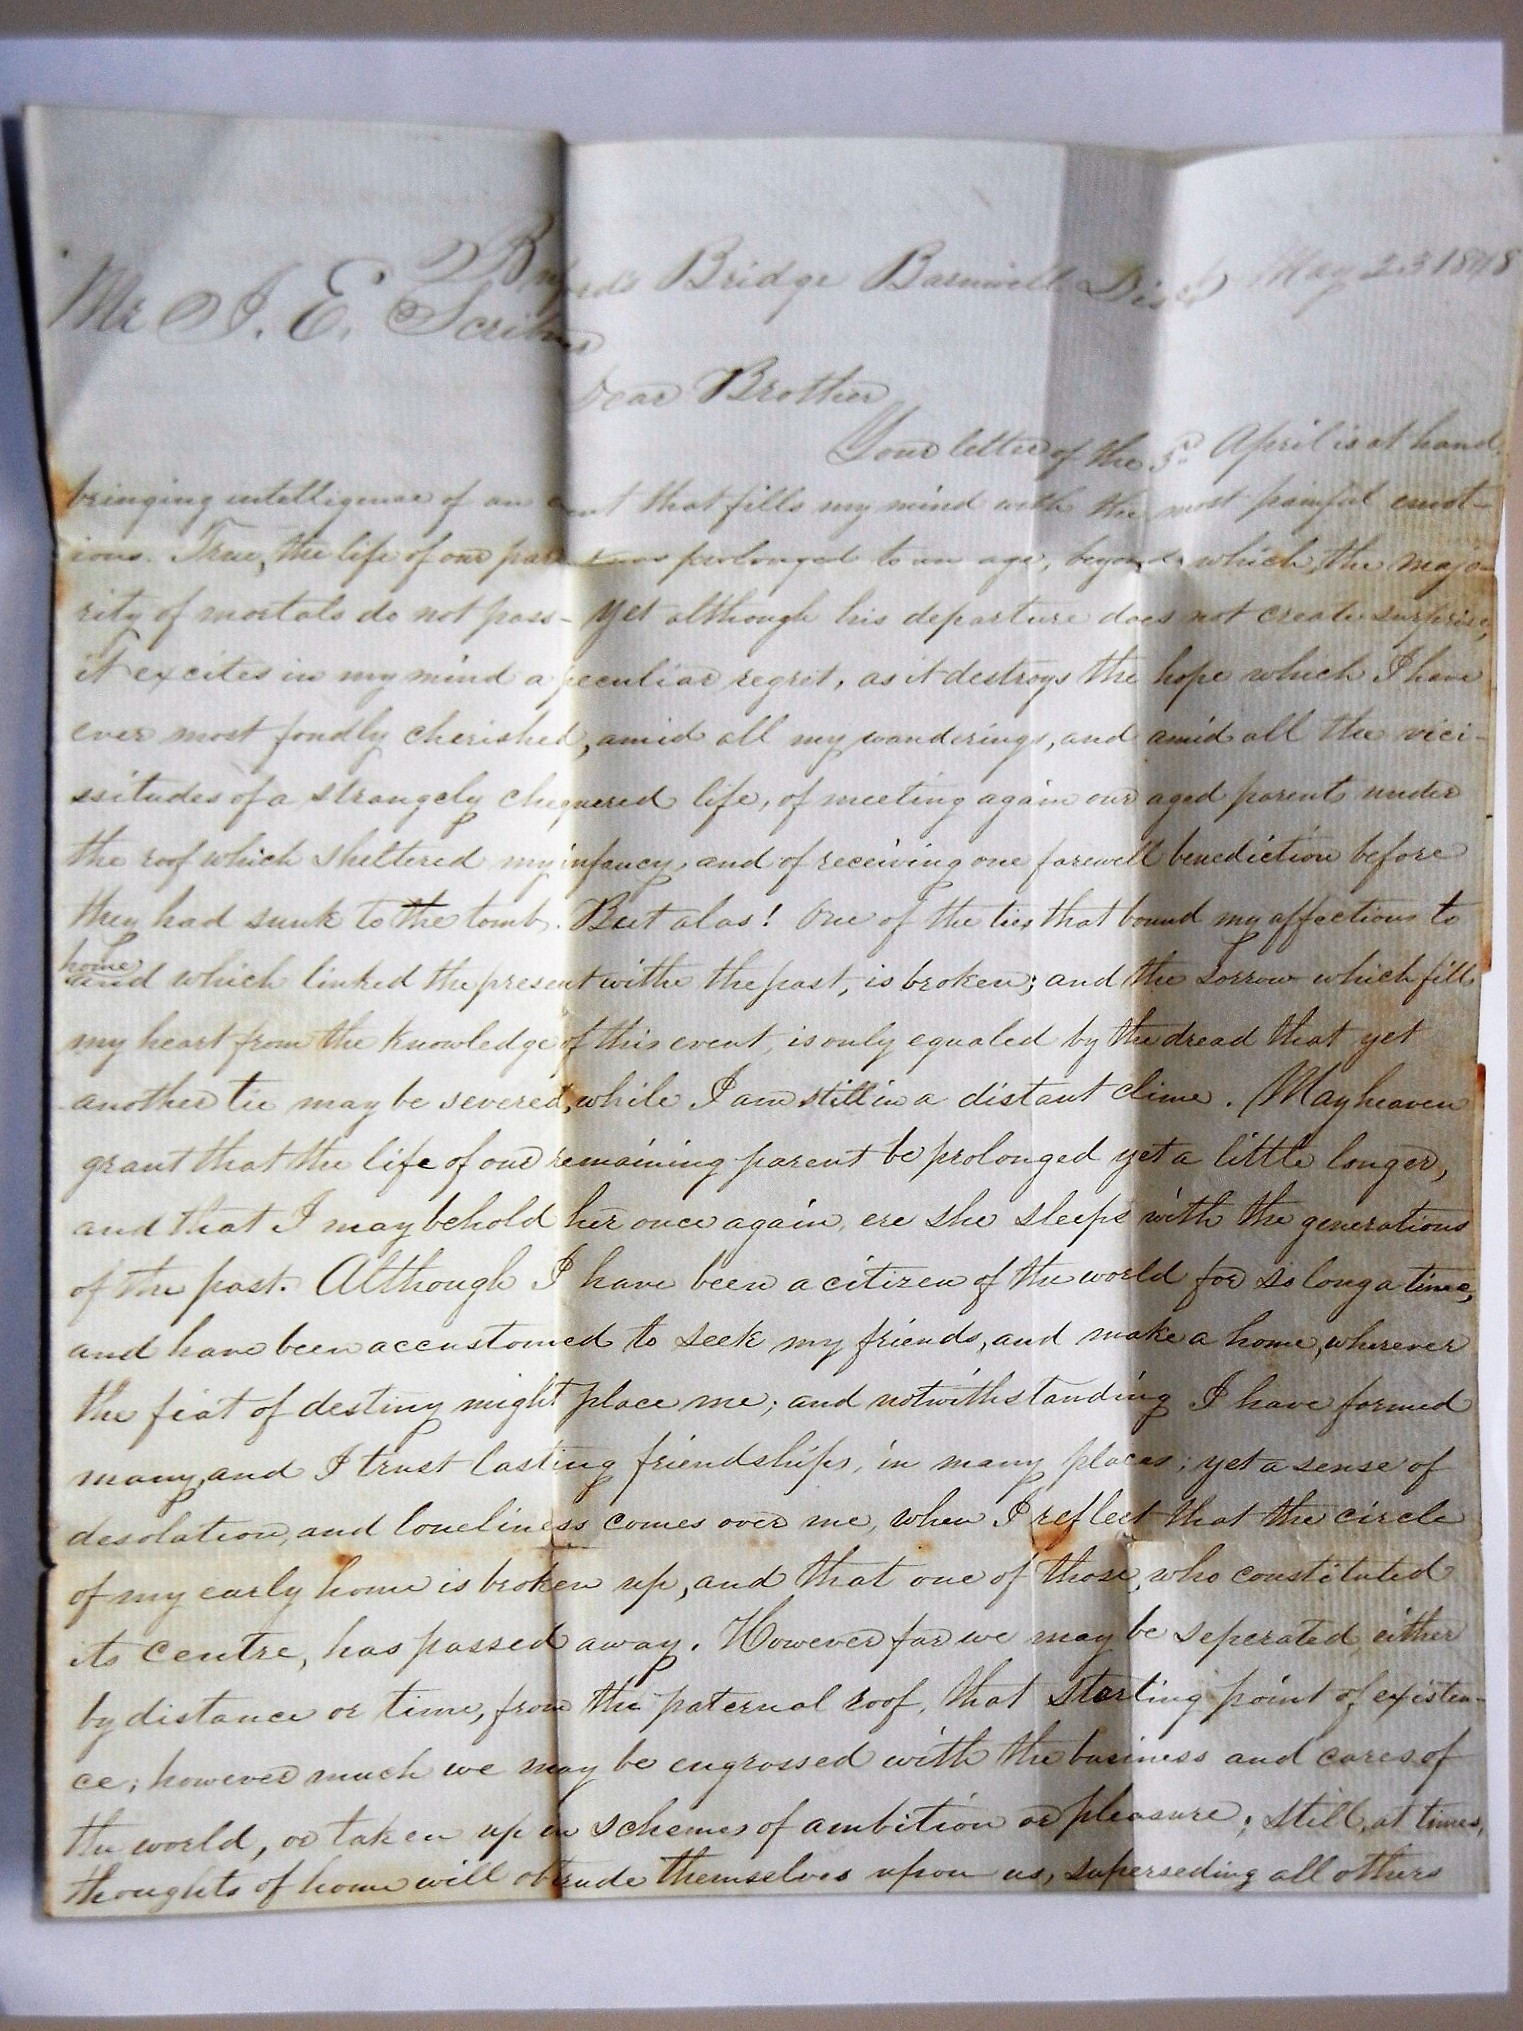 Buford's Bridge Barnwell Dist May 23 1848
Mr J. E. Scribns
Dear Brother
Your letter of the 5th April is at hand,
bringing intelligence of an event that fills my mind with the most painful emot-
ions. True, the life of our parent was prolonged to an age, beyond which, the majo-
rity of mortals do not pass- yet although his departure does not create surprise,
it excites in my mind a peculiar regret, as it destroys the hope which I have
ever most fondly cherished, amid all my wanderings, and amid all the vici-
ssitudes of a strangely chequered life, of meeting again our aged parents under
the roof which sheltered my infancy, and of receiving one farewell benediction before
they had sunk to the tomb. But alas! One of the ties that bound my affections to
home
and which linked the present withe the past, is broken; and the sorrow which fills
my heart from the knowledge of this event, is only equaled by the dread that yet
another tie may be severed, while I am still in a distant clime. May heaven
grant that the life of our remaining parent be prolonged yet a little longer,
and that I may behold her once again, ere she sleeps with the generations
of the past. Although I have been a citizen of the world for so long a time,
and have been accustomed to seek my friends, and make a home, wherever
the fiat of destiny might place me; and notwithstanding I have formed
many, and I trust lasting friendships, in many places; yet a sense of
desolation, and loneliness comes over me, when I reflect that the circle
of my early home is broken up, and that one of those, who constituted
its centre, has passed away. However far we may be seperated either
by distance or time, from the paternal roof, that starting point of existen-
ce; however much we may be engrossed with the business and cares of
the world, or taken up in schemes of ambition or pleasure; still, at times,
thoughts of home will obtrude themselves upon us, superseding all others